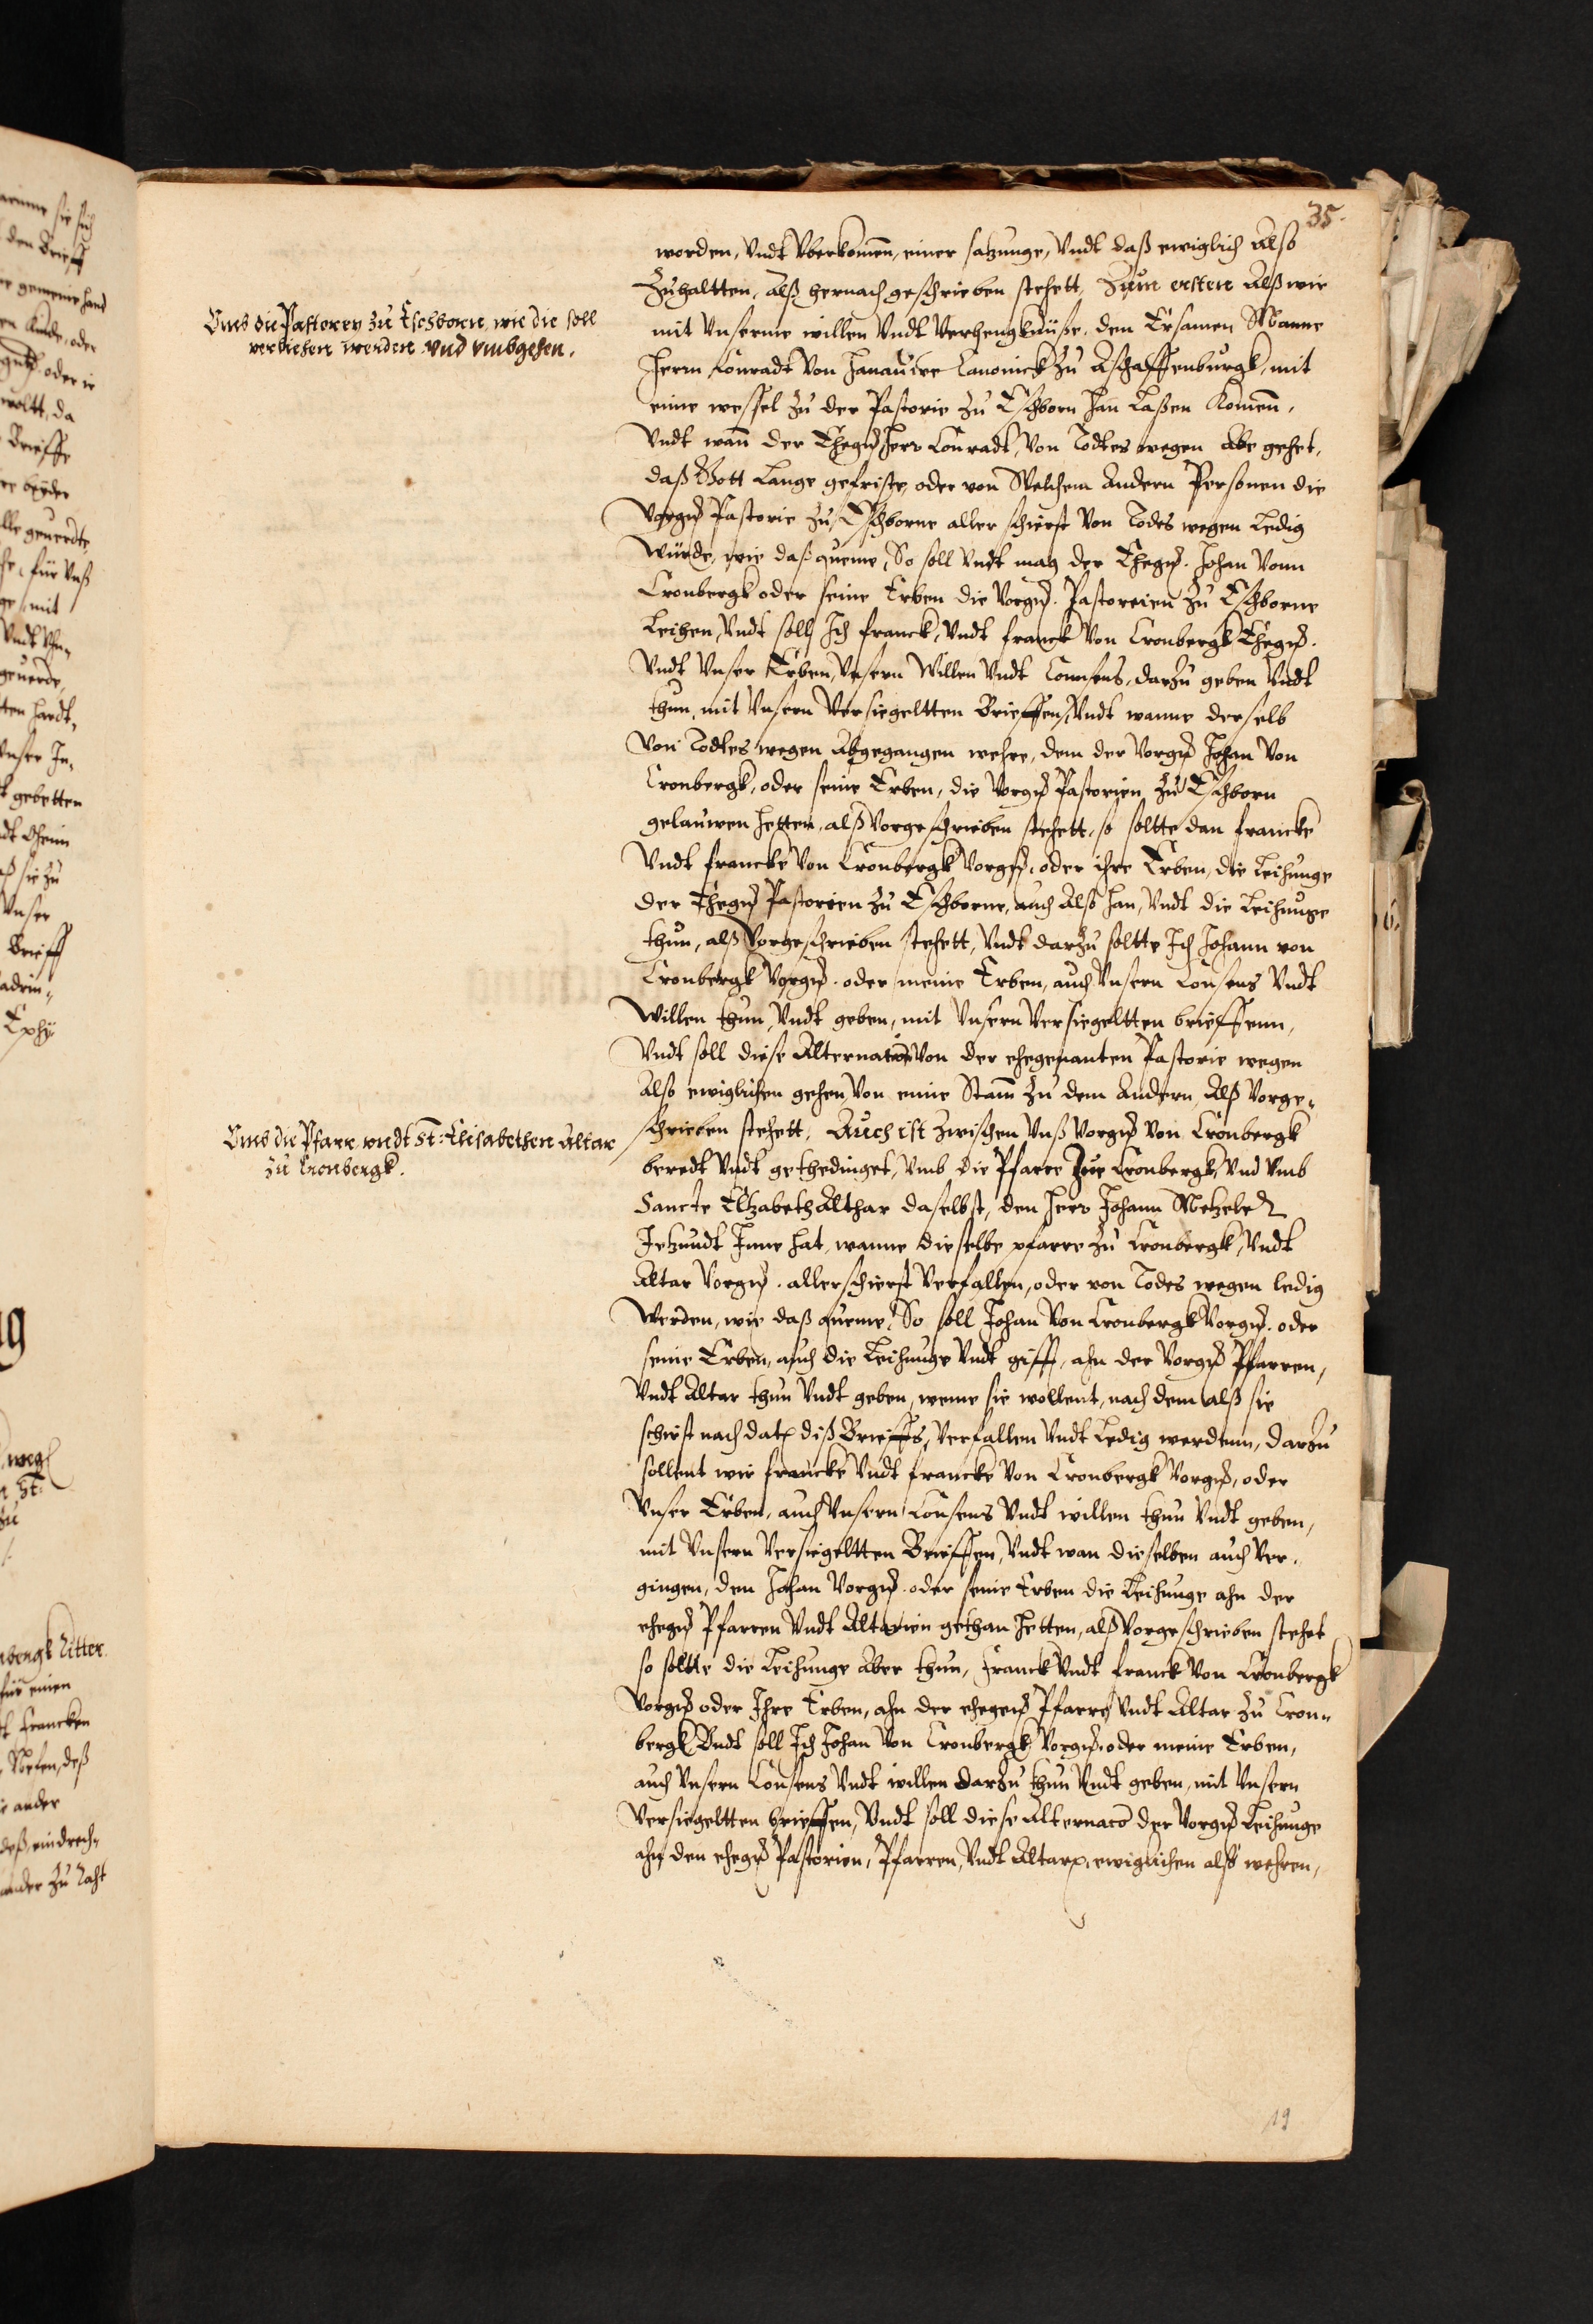 35.
worden, Vndt Vberkomen, einer satzunge, Vndt daß ewiglich Also
Zuhaltten, Alß hernach geschrieben stehett, Zum ersten Alß wir
Vmb die Pastorey zu Eschborn, wie die soll
verliehen werden vnd vmbgehen.
mit Vnserme willen Vndt Verhengknüße, den Ersamen Manne
Herrn Conradt Von Hanauwe Canonick zu Aschaffenburgk, mit
eime wessel zu der Pastorie zu Eschborn han Laßen Komen,
Vndt wan der Ehegß Herr Conradt, Von Todtes wegen Abe gehet,
daß Gott Lange gefriste, oder von Welchem Andern Personen die
Vorgß Pastorie zu Eschborne aller schierst Von Todes wegen Ledig
würde, wie daß queme, So soll Vndt mag der Ehegß. Johan Vonn
Cronbergk oder seine Erben die Vorgß. Pastoreien zu Eschborne
Leihen, Vndt soll Ich Franck, Vndt Franck Von Cronbergk Ehegß.
Vndt Vnser Erben, Vnsern Willen Vndt Consens, darzu geben Vndt
thun, mit Vnsern Versiegeltten Brieffen, Vndt wanne derselb
Von Todtes wegen Abgegangen wehre, dem der Vorgß Johan Von
Cronbergk, oder seine Erben, die Vorgß Pastorien zu Eschborn
gelauwen hetten, alß Vorgeschrieben stehett, so soltte dan Francke
Vndt Francke Von Cronbergk Vorgß, oder ihre Erben, die Leihunge
der Ehegß Pastorien zu Eschborne, auch Also han, Vndt die Leihunge
thun, alß Vorgeschrieben stehett, Vndt darzu soltte Ich Johann von
Cronbergk Vorgß. oder meine Erben, auch Vnsern Consens Vndt
Willen thun, Vndt geben, mit Vnsern Versiegeltten brieffenn,
Vndt soll diese Alternation Von der ehegenanten Pastorie wegen
Also ewiglichen gehen, Von eime Stam zu dem Andern, Alß Vorge-
Vmb die Pfarr vndt St: Elisabethen Altar
zu Cronbergk.
schrieben stehett, Auch ist zwischen Vnß Vorgß Von Cronbergk
beredt Vndt gethedinget, Vmb die Pfarre Zue Cronbergk, Vnd Vmb
Sancte Elzabeth Althar daselbst, den Herr Johann
Jetzundt Inne hat, wanne dieselbe pfarre zu Cronbergk, Vndt
Altar Vorgß. allerschierst Verfallen, oder von Todes wegen ledig
Werden, wie daß queme, So soll Johan Von Cronbergk Vorgß. oder
seine Erben, auch die Leihunge Vndt gifft, ahn der Vorgß Pfarren,
Vndt Altar thun Vndt geben, weme sie wollent, nach dem alß sie
schirst nach dato diß Brieffs, Verfallen Vndt Ledig werdenn, darzu
sollent wir Francke Vndt Francke Von Cronbergk Vorgß, oder
Vnser Erben, auch Vnsern Consens Vndt willen thun Vndt geben,
mit Vnsern Versiegeltten Brieffen, Vndt wan dieselben auch Ver-
gingen, dem Johan Vorgß. oder seine Erben die Leihunge ahn der
ehegß Pfarren Vndt Altarien gethan hetten, alß Vorgeschrieben stehet
so soltte die Leihunge Aber thun, Franck Vndt Franck Von Cronbergk
Vorgß oder Ihre Erben, ahn der ehegeß Pfarre Vndt Altar zu Cron-
bergk Vndt soll Ich Johan Von Cronbergk Vorgß. oder meine Erben,
auch Vnsern Consens Vndt willen darzu thun Vndt geben, mit Vnsern
Versiegeltten brieffen, Vndt soll diese Alternaco der Vorgß Leihunge
ahn den ehegß Pastorien, Pfarren, Vndt Altarn, ewiglichen alß wehren,
19